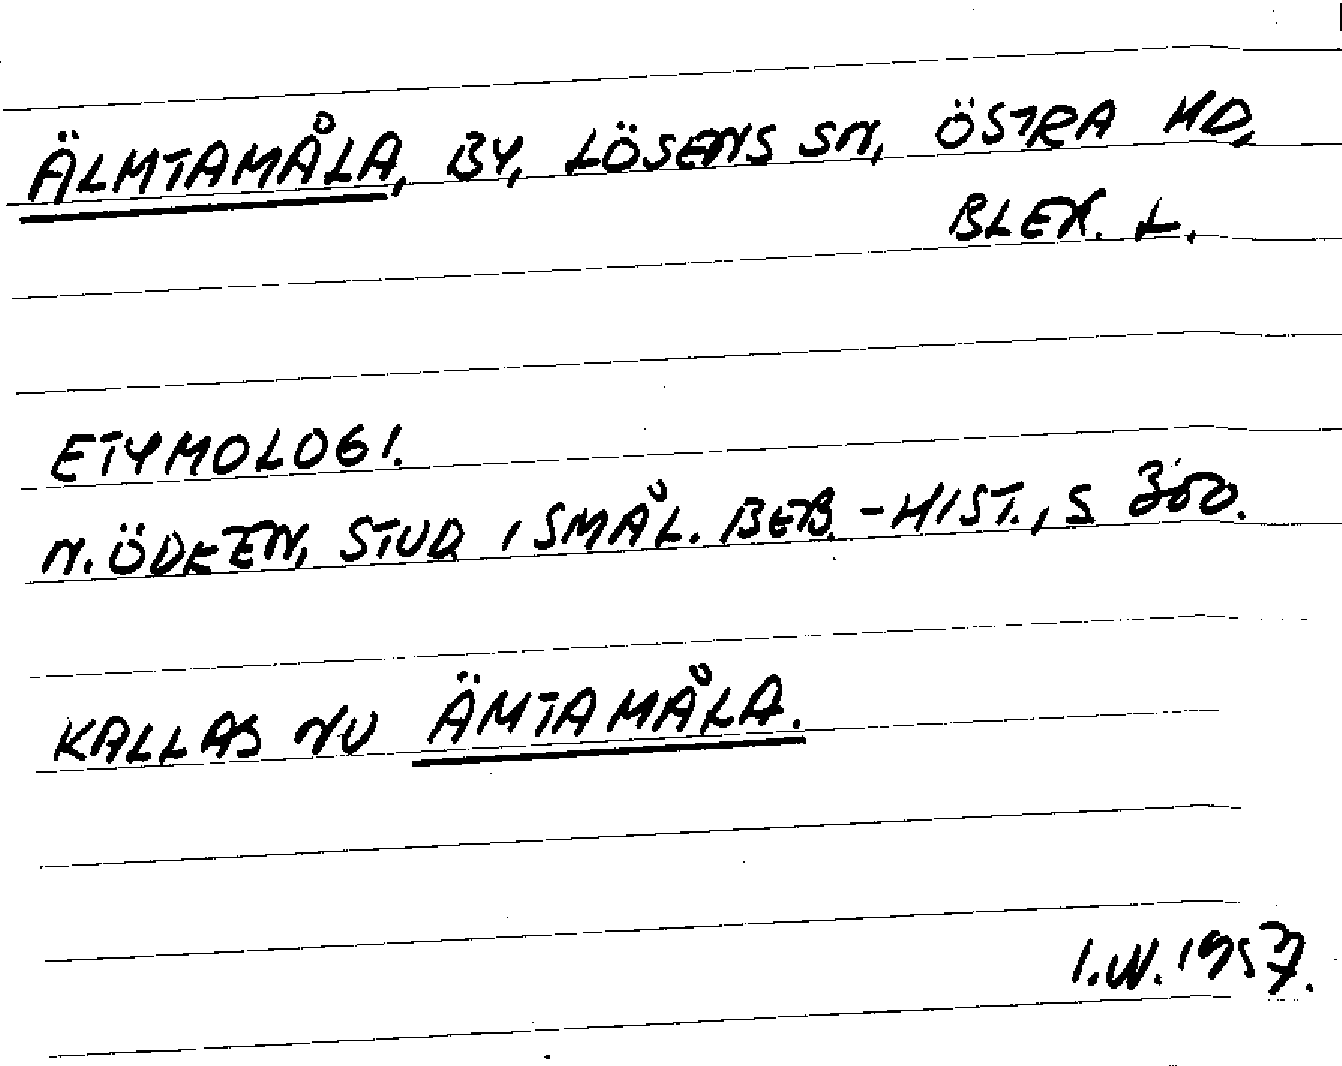 ÄLMTAMÅLA, BY, LÖSENS SN, ÖSTRA HD,
BLEK. L.
ETYMOLOGI.
N. ÖDEEN, STUD. I SMÅL. BEB.-HIST., S. 300.
KALLAS NU ÄMTAMÅLA.
I.W. 1957.